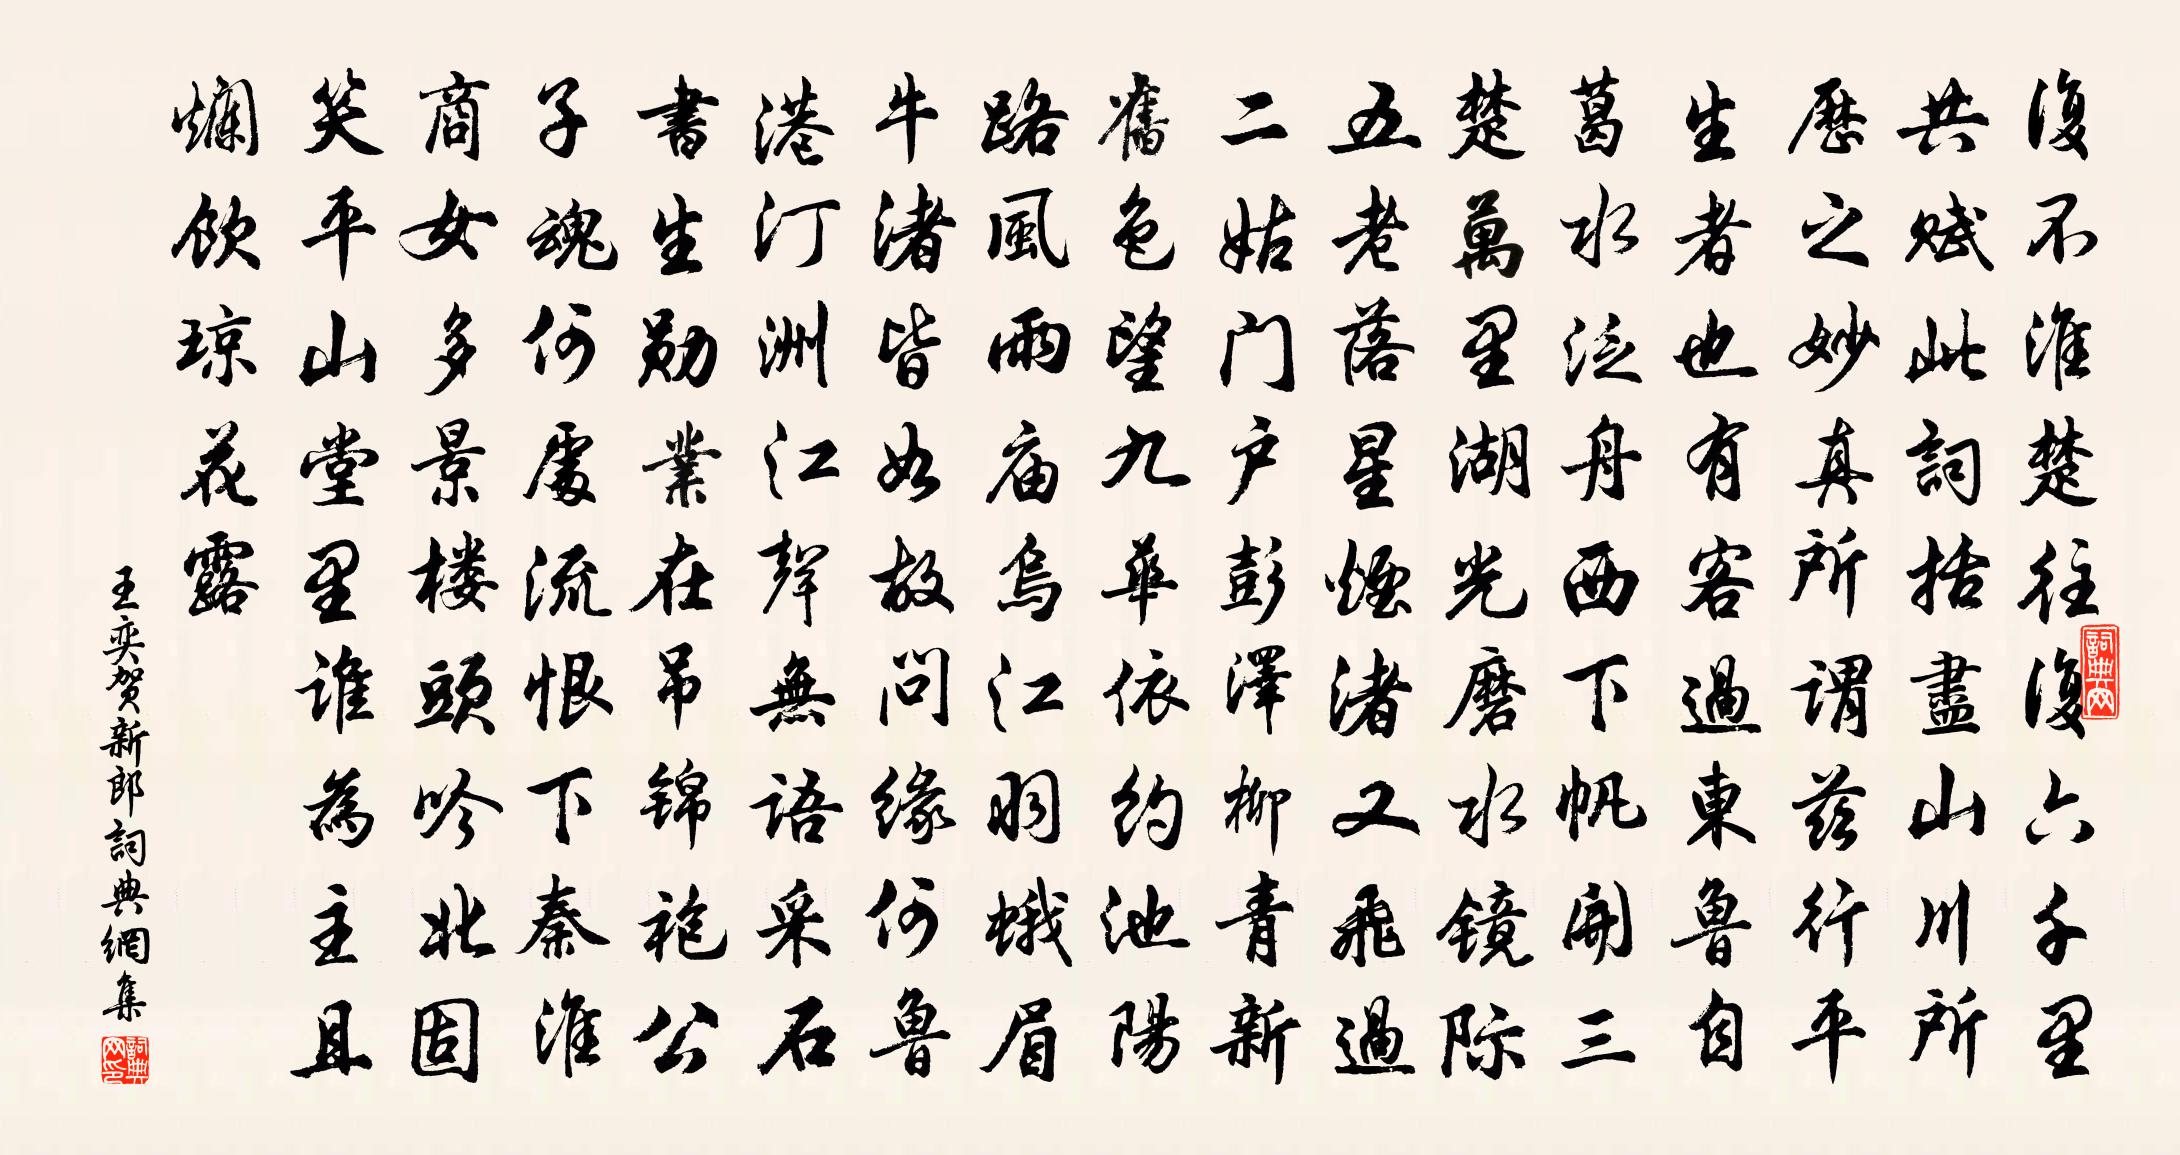 復不淮楚往復六千里
共賦此詞括盡山川所
歷之妙真所謂茲行平
生者也有客過東魯自
葛水泛舟西下帆開三
楚萬里湖光磨水镜际
五老落星煙渚又飛過
二姑门户彭澤柳青新
舊色望九華依約池陽
路風雨庙烏江羽蛾眉
牛渚皆如故問缘何魯
港汀洲江聲無語采石
書生勋業在吊锦袍公
子魂何處流恨下秦淮
商女多景楼頭吟北固
笑平山堂里谁為主且
爛飲琼花露
王奕贺新郎詞典網集
詞典网
詞典网印